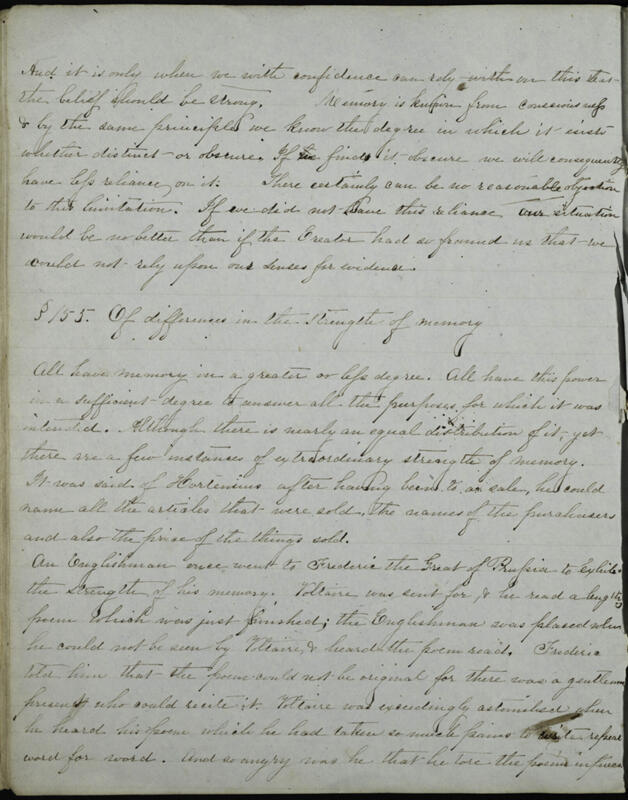 And it is only when we with confidence can rely with on this that
the belief should be strong. Memory is known from consciousness
& by the same principle we know the degree in which it exists
whether distinct or obscure. If we find it obscure we will consequently
have less reliance on it. There certainly can be no reasonable objection
to this limitation. If we did not have this reliance our situation
would be no better than if the Creator had so framed us that we
could not rely upon our senses for evidence.
§ 155. Of differences in the strength of memory
All have memory in a greater or less degree. All have this power
in a sufficient degree to answer all the purposes for which it was
intended. Although there is nearly an equal distribution of it, yet
there are a few instances of extraordinary strength of memory.
It was said of Hortensius after having been to a sale, he could
name all the articles that were sold, the names of the purchasers
and also the price of the things sold.
An Englishman once went to Frederic the Great of Prussia to exhibit
the strength of his memory. Voltaire was sent for, & he read a lengthy
poem which was just finished; the Englishman was placed where
he could not be seen by Voltaire, & heard the poem read. Frederic
told him that the poem could not be original for there was a gentleman
present who could recite it. Voltaire was exceedingly astonished when
he heard his poem which he had taken so much pains to write repeated
word for word. And so angry was he that he tore the poem in pieces